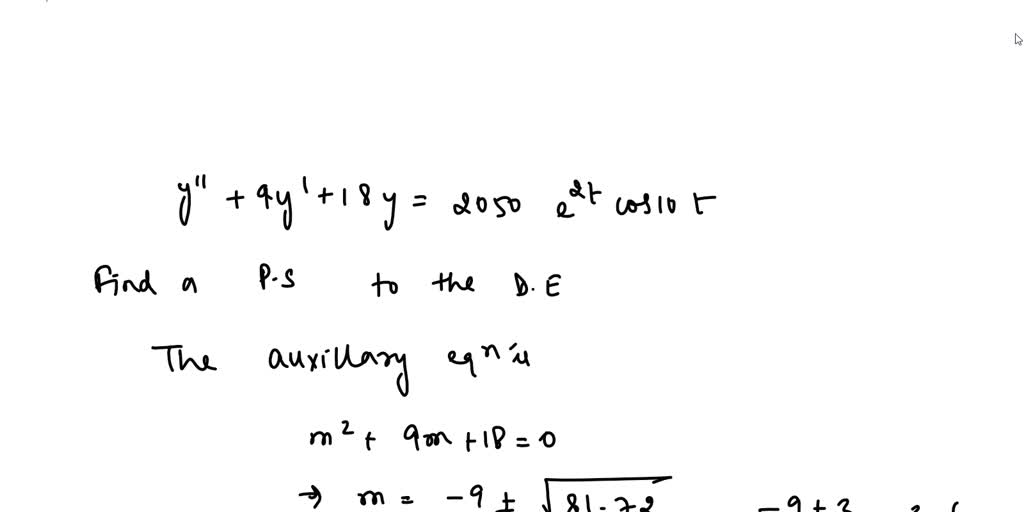 y'' + 9y' + 18y = 2050 e^2t cos10 t
Find a P.S to the D.E
The auxillary eqn is
m^2 + 9m + 18 = 0
→ m = -9 ± √81-72 -9 ± 3